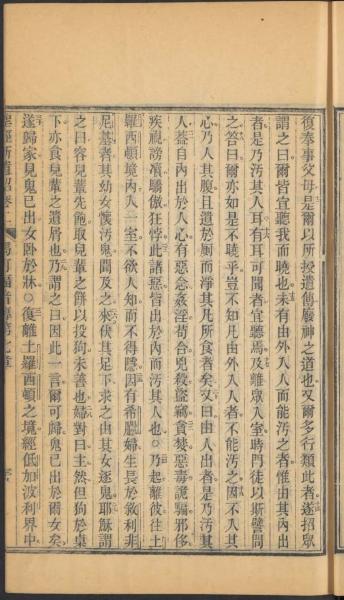 復奉事父母是爾以所授遺傳廢神之道也又爾多行類此者遂招眾
謂之曰爾皆宜聽我而曉也未有由外入人而能汚之者惟由其內出
者是乃汚其人耳有耳可聞者宜聽焉及離眾入室時門徒以斯譬問
之答曰爾亦如是不曉乎豈不知凡由外入人者不能汚之因不入其
心乃入其腹且遺於厠而淨其凡所食者矣又曰由人出者是乃汚其
人蓋自內出於人心有惡念姦淫苟合兇殺盜竊貪婪惡毒詭騙邪侈
疾視謗瀆驕傲狂悖此諸惡皆出於內而汚其人也○乃起離彼往土
羅西頓境內入一室不欲人知而不得隱因有希臘婦生長於敘利非
尼基者其幼女懷汚鬼聞及之來伏其足下求之由其女逐鬼耶穌謂
之曰容兒輩先飽取兒輩之餅以投狗未善也婦對曰主然但狗於桌
下亦食兒輩之遺屑也乃謂之曰因此一言爾可歸鬼已出於爾女矣
遂歸家見鬼已出女卧於牀○復離土羅西頓之境經低加波利界中